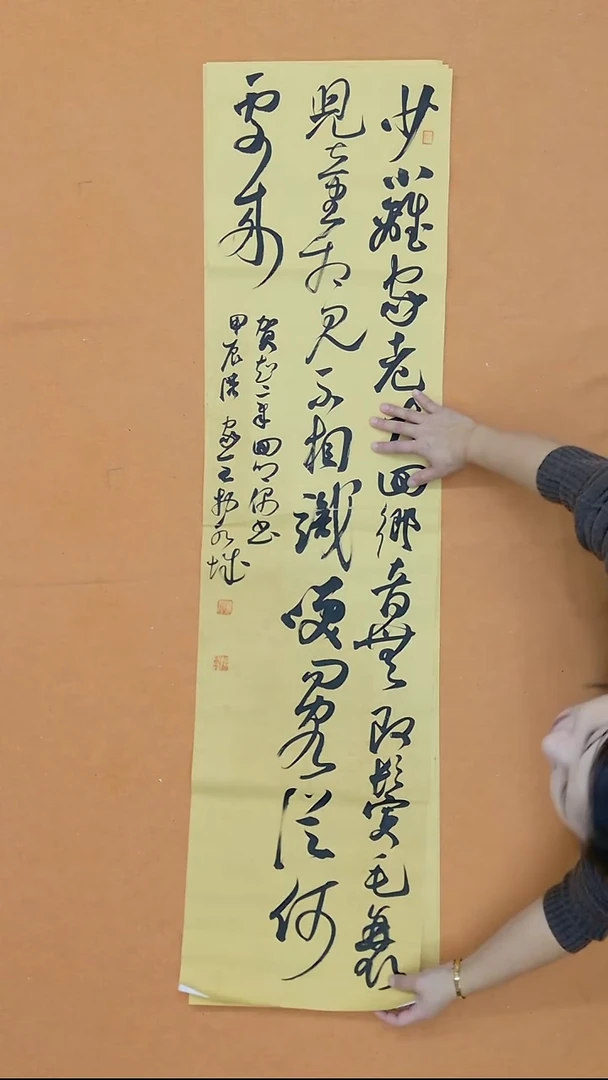 少小離家老大回鄉音無改鬢毛衰
兒童相見不相識咲問客從何
處來
賀知章回鄉偶書
甲辰